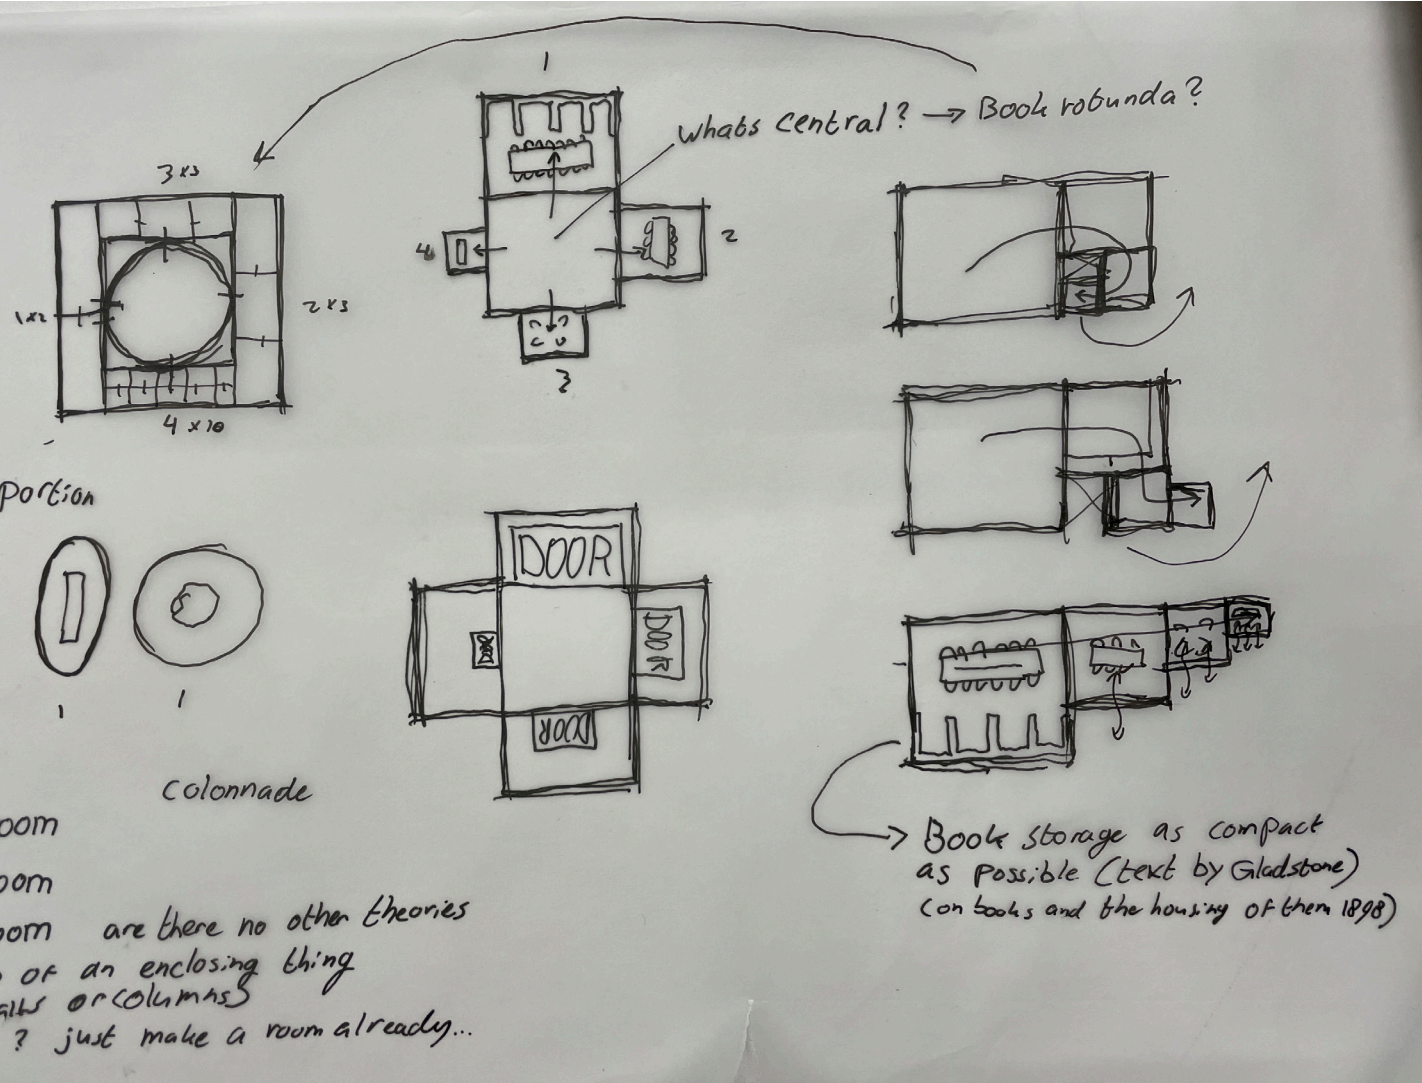 1
whats central? → Book rotunda?
3 x 3
4
2
1x2
2 x 3
3
4 x 10
portion
DOOR
DOOR
DOOR
DOOR
1
1
colonnade
oom
oom
oom are there no other theories
of an enclosing thing
alls or columns)
? just make a room already...
Book storage as compact
as possible (text by Gladstone)
(on books and the housing of them 1898)